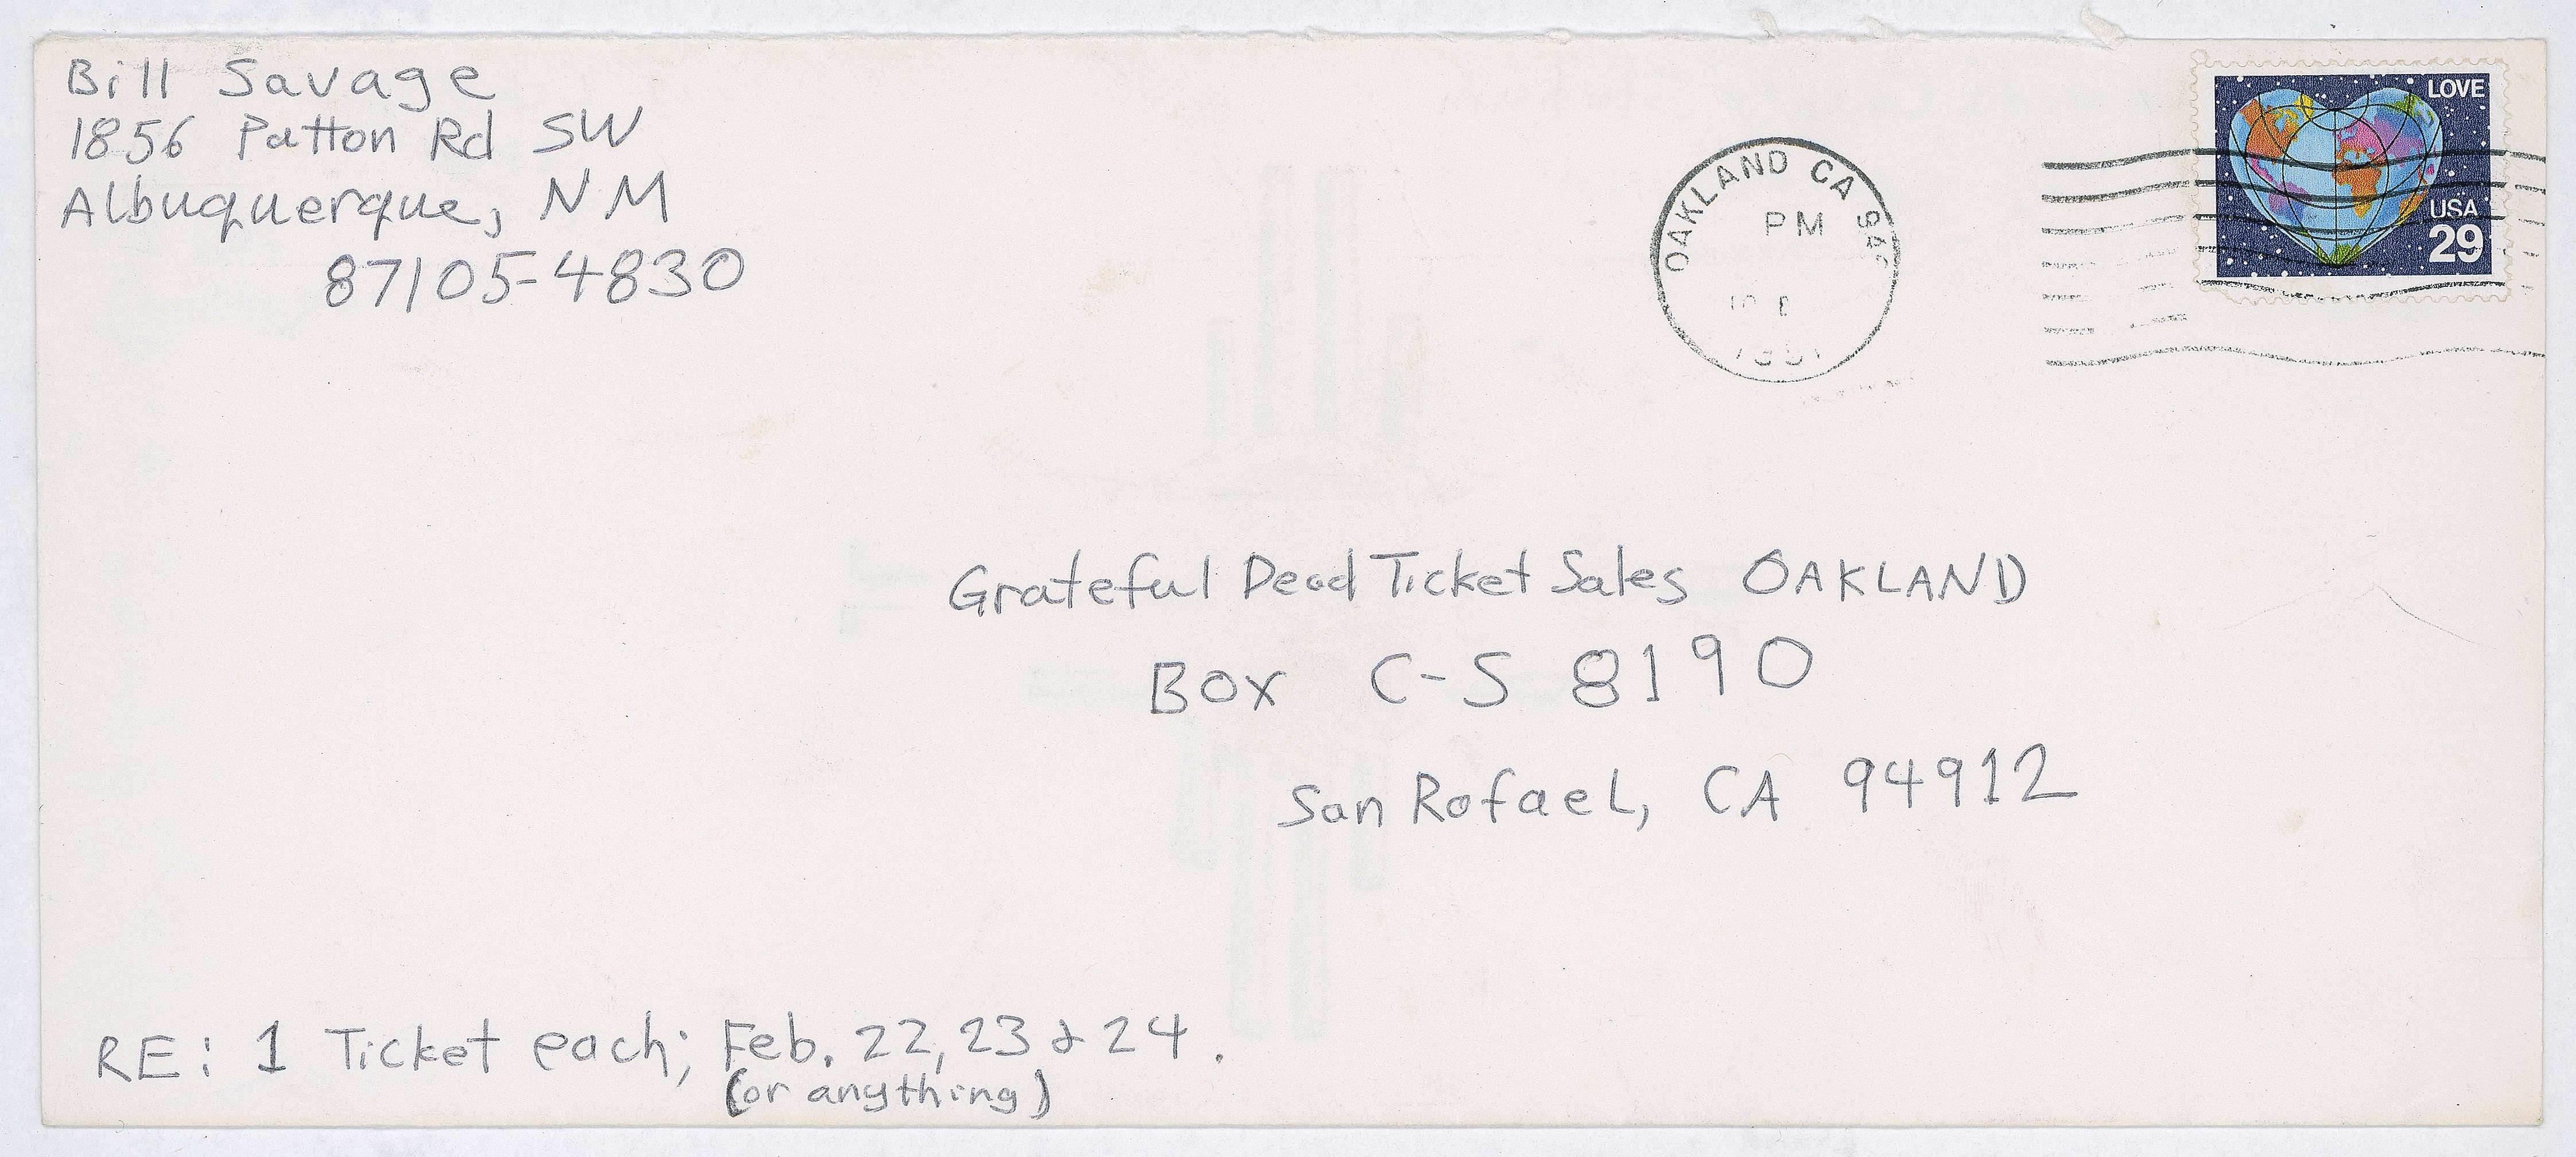 Bill Savage
1856 Patton Rd SW
Albuquerque, NM
87105-4830
OAKLAND CA
PM
LOVE
USA
29
Grateful Dead Ticket Sales OAKLAND
Box C-S 8190
San Rafael, CA 94912
RE: 1 Ticket each; Feb. 22, 23 & 24.
(or anything)